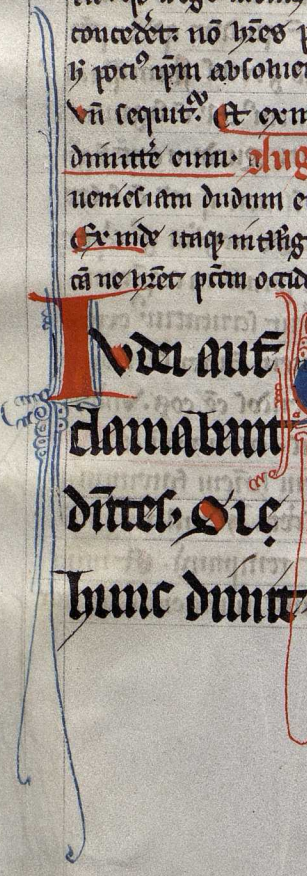 concedet: nō hr̄es p
hͥ pociꝰ ip̄m absoluer
vn̄ sequit᷑. Et exin
dimitt'e eum. Aug
uenies iam dudum e
Ex inde itaq in tllig
cā ne hr̄et pctm̄ occid
Iudei aut̄
clamabant
dn̄tes. Si ę
hunc dimitt